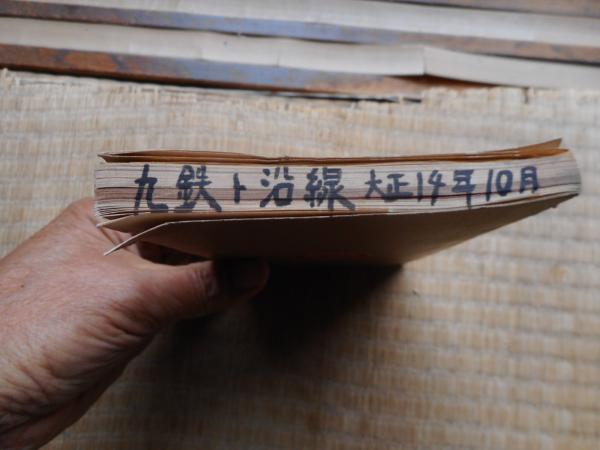 九鉄ト沿線 大正14年10月